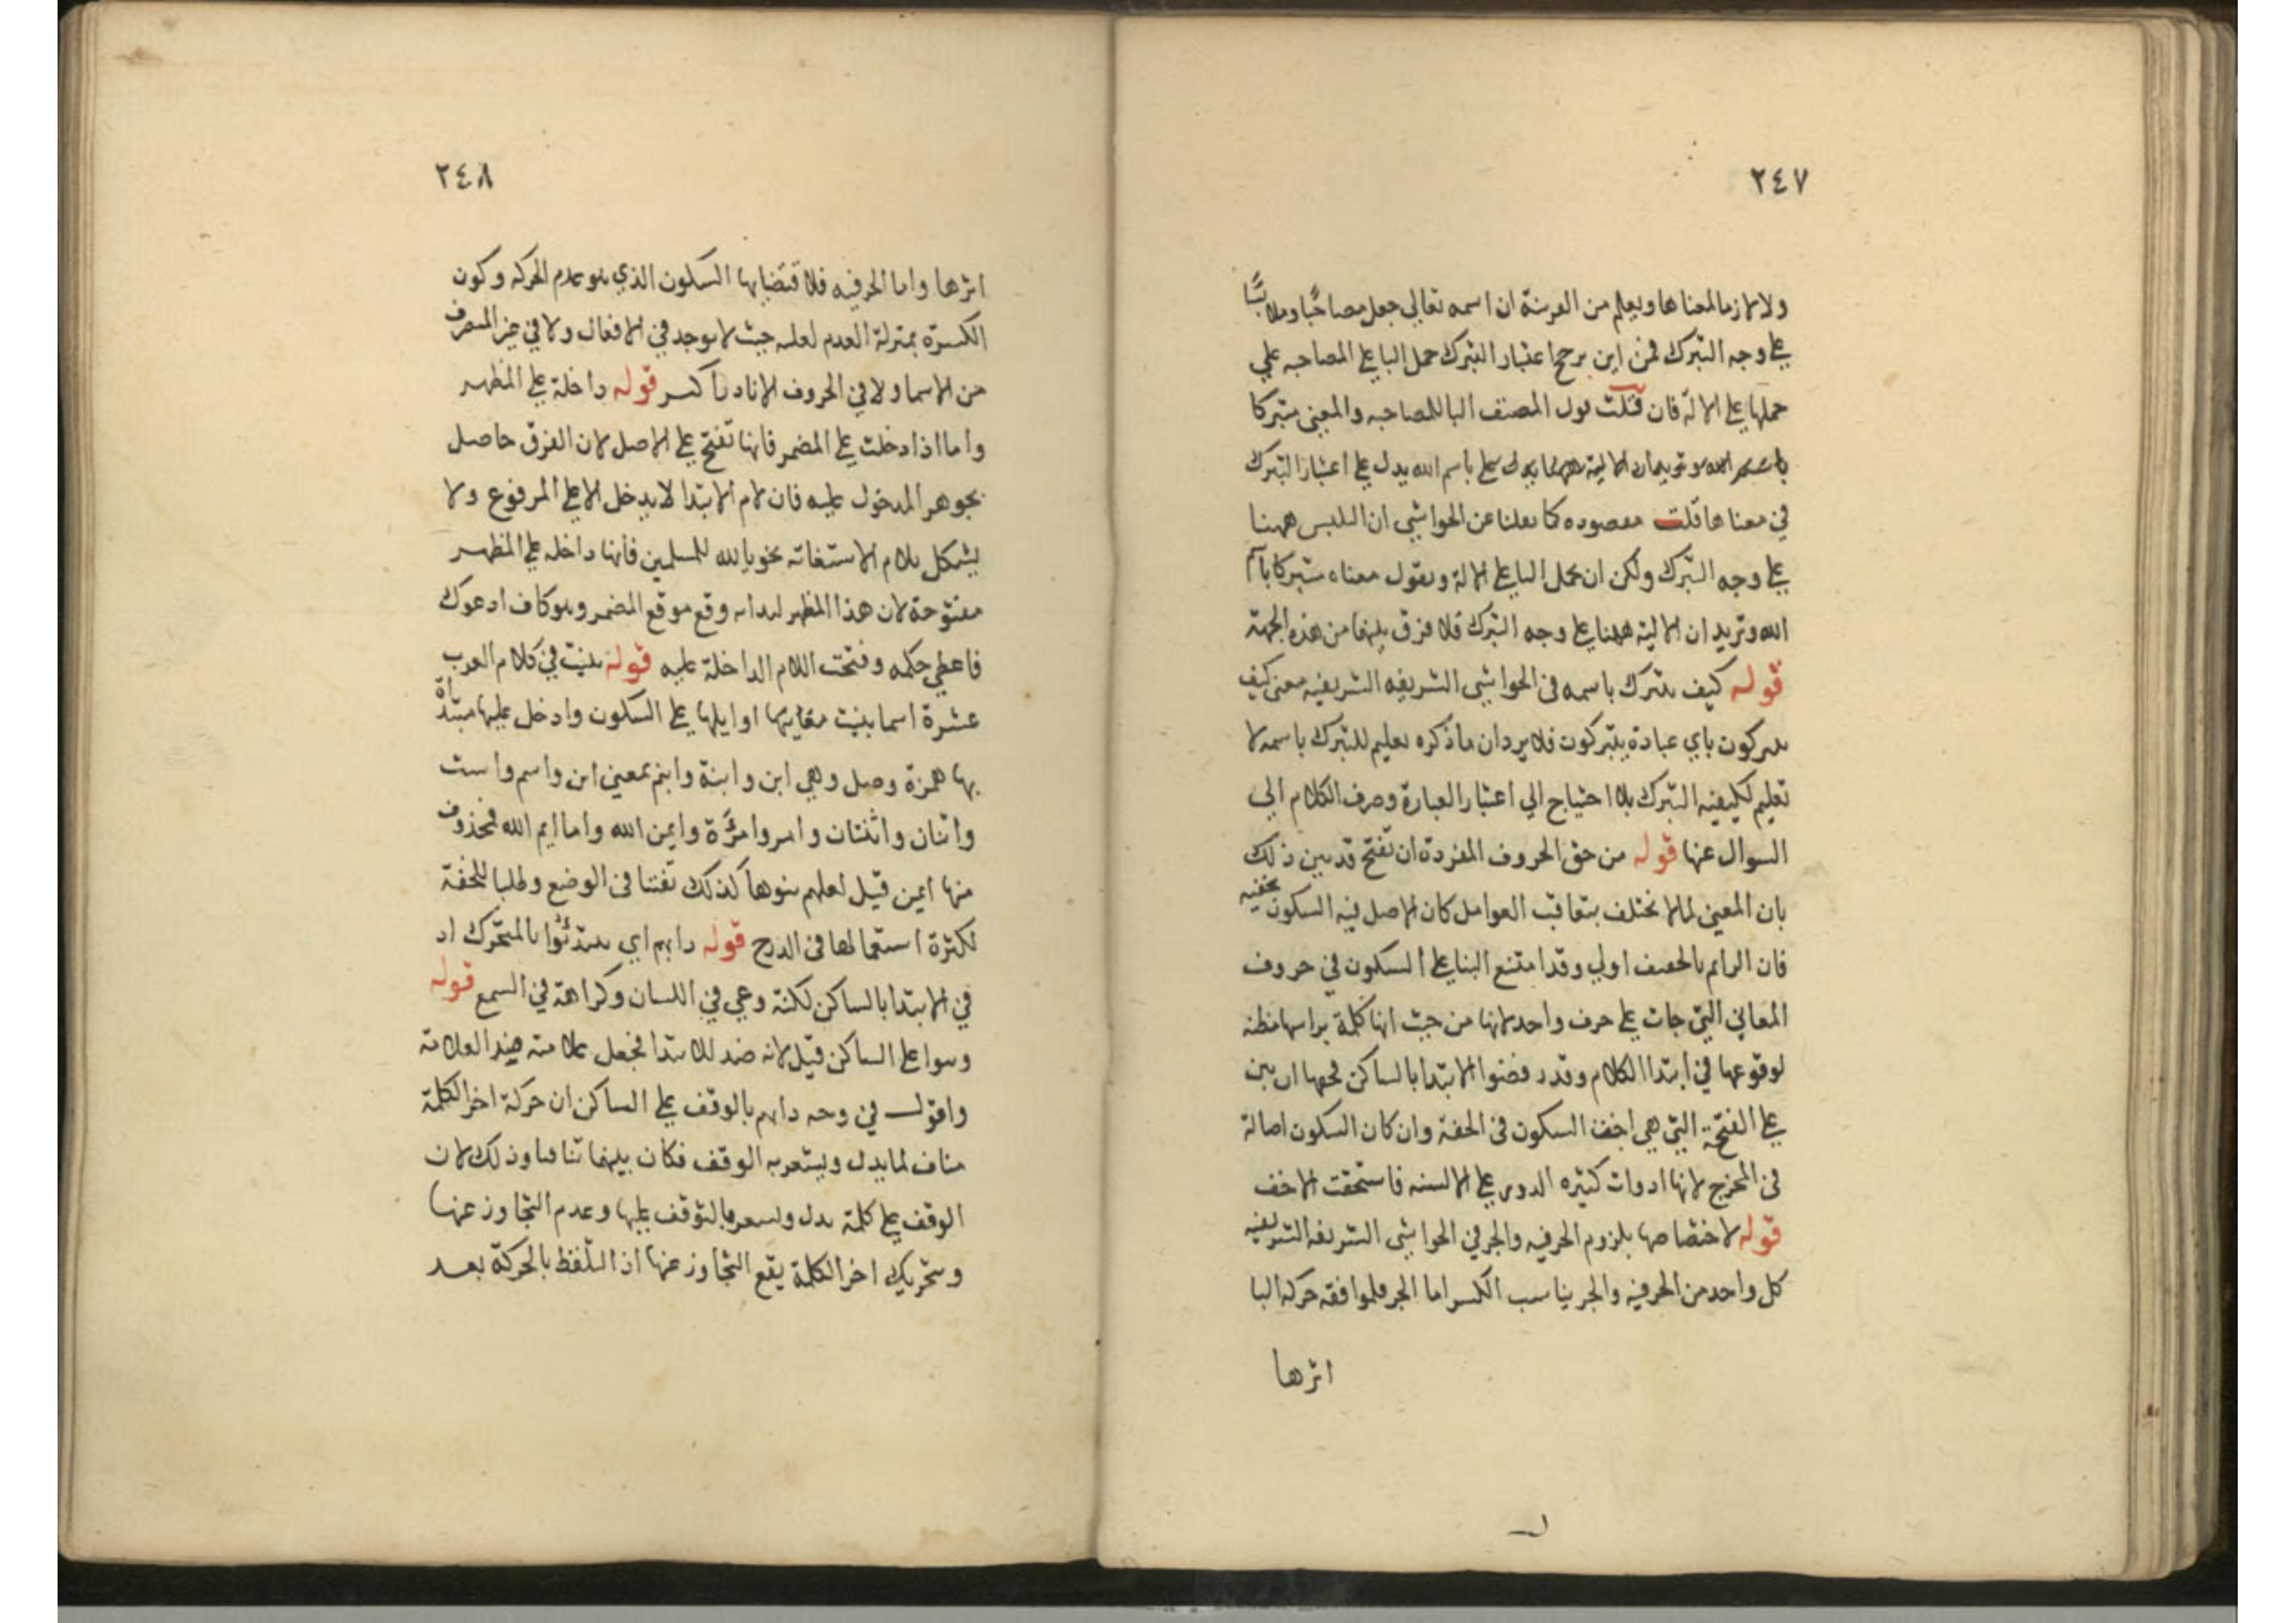 ٢٤٧
ولا لازما لمعناها ويعلم من القرينة ان اسمه تعالى جعل مصاحبًا وملابسًا
على وجه التبرك فمن اين يرجح اعتبار التبرك حمل البا على المصاحبه علي
حملها على الالة فان قلت قول المصنف البا للمصاحبه والمعنى متبركا
باسم الله يدل على اعتبار التبرك
في معناها قلت مقصوده كما نقلنا عن الحواشي ان التلبس ههنا
على وجه التبرك ولكن ان تحمل البا على الالة وتقول معناه متبركا باسم
الله وتريد ان الالية ههنا على وجه التبرك فلا فرق بينهما من هذه الجهة
قوله كيف يتبرك باسمه فى الحواشي الشريفه الشريفيه معنى كيف
يتبركون باي عبادة يتبركون فلا يرد ان ما ذكره تعليم للتبرك باسمه لا
تعليم لكيفيه التبرك بلا احتياج الي اعتبار العبارة وصرف الكلام الي
السوال عنها قوله من حق الحروف المفردة ان تفتح قد بين ذلك
بان المعنى لما لا يختلف بتعاقب العوامل كان الاصل فيه السكون لخفته
فان الدايم بالخفيف اولي وقد امتنع البنا على السكون في حروف
المعاني التي جات على حرف واحد لانها من حيث انها كلمة براسها مظنه
لوقوعها في ابتدا الكلام وقد رفضوا الابتدا بالساكن فحقها ان تبنى
على الفتحة التي هي اخف السكون فى الخفة وان كان السكون اصالة
فى المخرج لانها ادوات كثيره الدور على الالسنه فاستحقت الاخف
قوله لاختصاصها بلزوم الحرفيه والجر في الحواشي الشريفه الشريفيه
كل واحد من الحرفيه والجر يناسب الكسر اما الجر فلموافقه حركه البا
اثرها
٢٤٨
اثرها واما الحرفيه فلاقتضايها السكون الذي هو عدم الحركه وكون
الكسرة بمنزلة العدم لقلته حيث لا يوجد في الافعال ولا في غير المنصرف
من الاسما ولا في الحروف الا نادرا كسر قوله داخلة على المظهر
واما اذا دخلت على المضمر فانها تفتح على الاصل لان الفرق حاصل
بجوهر المدخول عليه فان لام الابتدا لا يدخل الا على المرفوع ولا
يشكل بلام الاستغاثه نحو يا لله للمسلمين فانها داخله على المظهر
مفتوحة لان هذا المظهر وقع موقع المضمر وهو كاف ادعوك
فاعطي حكمه وفتحت اللام الداخلة عليه قوله بنيت في كلام العرب
عشرة اسما بنيت اوايلها على السكون وادخل عليها مبتداة
بها همزة وصل وهي ابن وابنة وابنم بمعنى ابن واسم واست
واثنان واثنتان وامرو وامرأة وايمن الله واما ايم الله فمحذوف
منها ايمن قيل لعلهم بنوها كذلك تفننا فى الوضع وطلبا للخفة
لكثرة استعمالها فى الدرج قوله دابهم اي يبتدئوا بالمتحرك اذ
في الابتدا بالساكن لكنة وعي في اللسان وكراهة في السمع قوله
وسوا على الساكن قيل لانه ضد للابتدا فجعل علامته ضد العلامة
واقول في وجه دابهم بالوقف على الساكن ان حركة اخر الكلمة
مناف لما يدل ويشعر به الوقف فكان بينهما تنافيا وذلك لان
الوقف على كلمة يدل ويشعر بالتوقف عليها وعدم التجاوز عنها
وبتحريك اخر الكلمة يقع التجاوز عنها اذ التلفظ بالحركة بعد